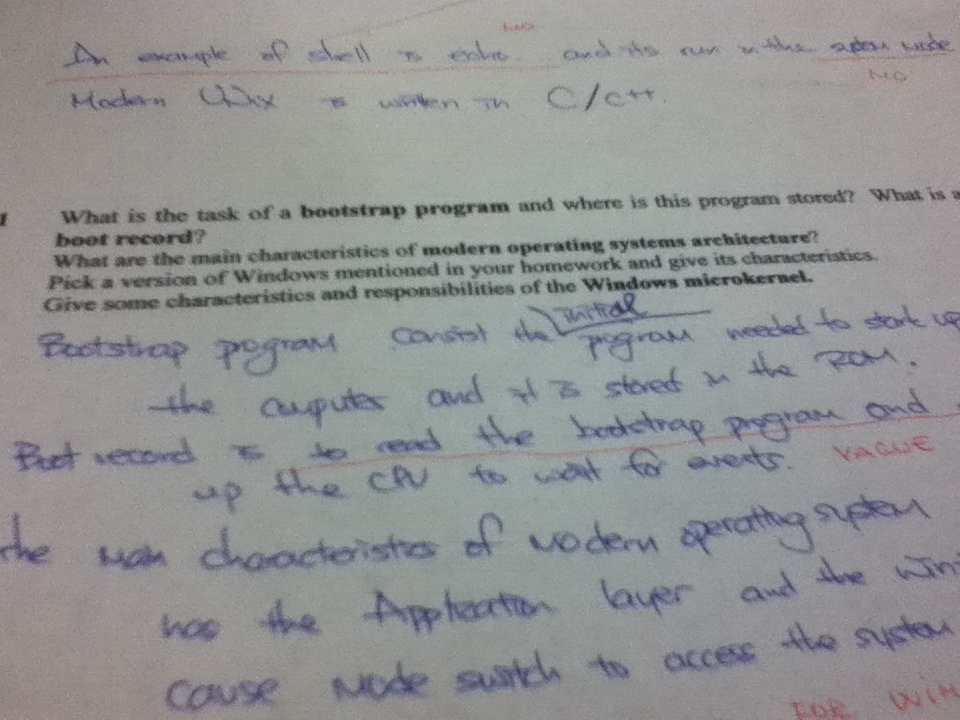 NO
An example of shell is and its run in the system mode
NO
Modern Unix is written in C/C++.
1 What is the task of a bootstrap program and where is this program stored? What is a
boot record?
What are the main characteristics of modern operating systems architecture?
Pick a version of Windows mentioned in your homework and give its characteristics.
Give some characteristics and responsibilities of the Windows microkernel.
initial
Bootstrap program consist the program needed to start up
the computer and it is stored in the ROM.
Boot record is to read the bootstrap program and
up the CPU to wait for events. VAGUE
the main characteristics of modern operating system
has the Application layer and the Win
cause mode switch to access the system
FOR WIN